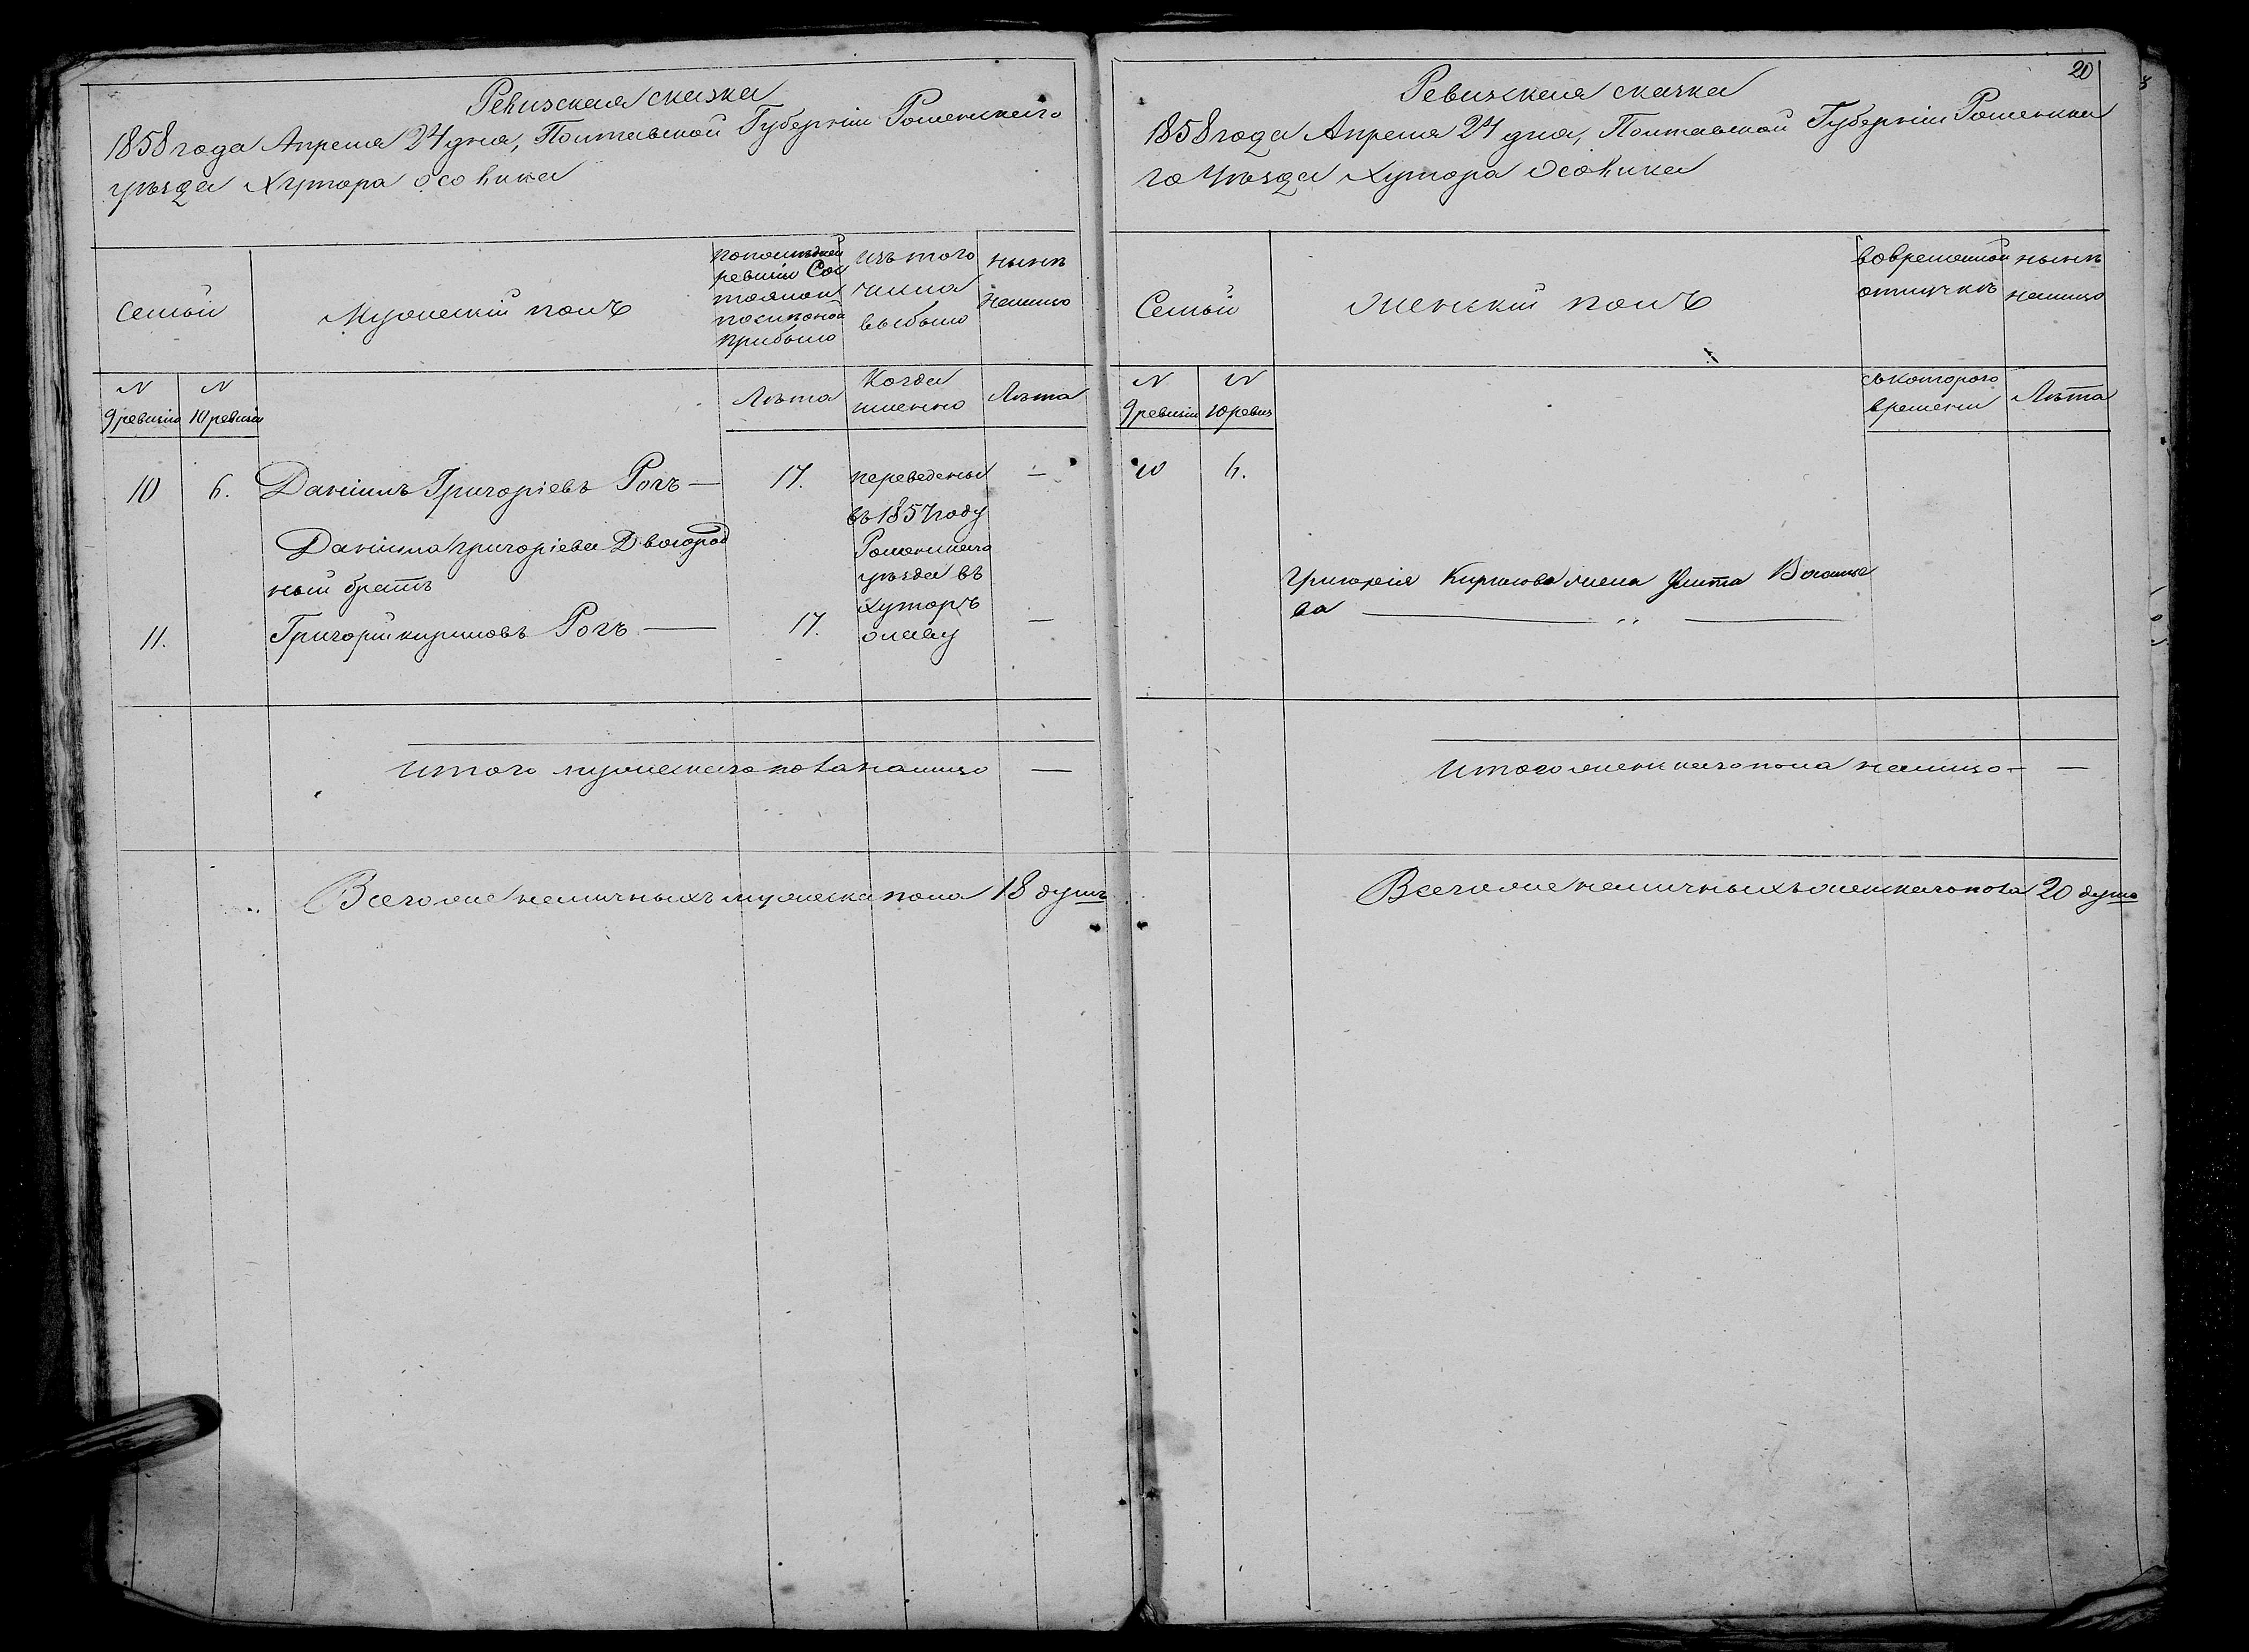 Ревизская сказка
1858 года Апреля 24 дня, Полтавской Губерніи Роменскаго
уѣзда Хутора Осовика
Семьи
Мужескій полъ
по последней
ревизіи Сос
тояло и
после оной
прибыло
изъ того
числа
выбыло
нынѣ
налицо
N
9 ревизіи
N
10 ревизіи
Лѣта
Когда
именно
Лѣта
10
6.
Даніилъ Григоріевъ Рогъ —
17.
переведены
—
въ 1857 году
Даніила Григоріева Двоюрод
Роменскаго
ный братъ
уѣзда въ
хуторъ
11.
Григорій Кириловъ Рогъ —
17.
—
Итого мужескаго пола налицо —
Всего же наличныхъ мужеска пола 18 душъ
20
Ревизская сказка
1858 года Апреля 24 дня, Полтавской Губерніи Роменска
го Уѣзда Хутора Осовика
Семьи
Женскій полъ
во временной
отлучкѣ
нынѣ
налицо
N
9 ревизіи
N
10 ревиз
съ котораго
времени
Лѣта
10
6.
Григорія Кирилова жена Улита Василье
ва — " —
Итого женскаго пола налицо — —
Всего же наличныхъ женскаго пола 20 душъ